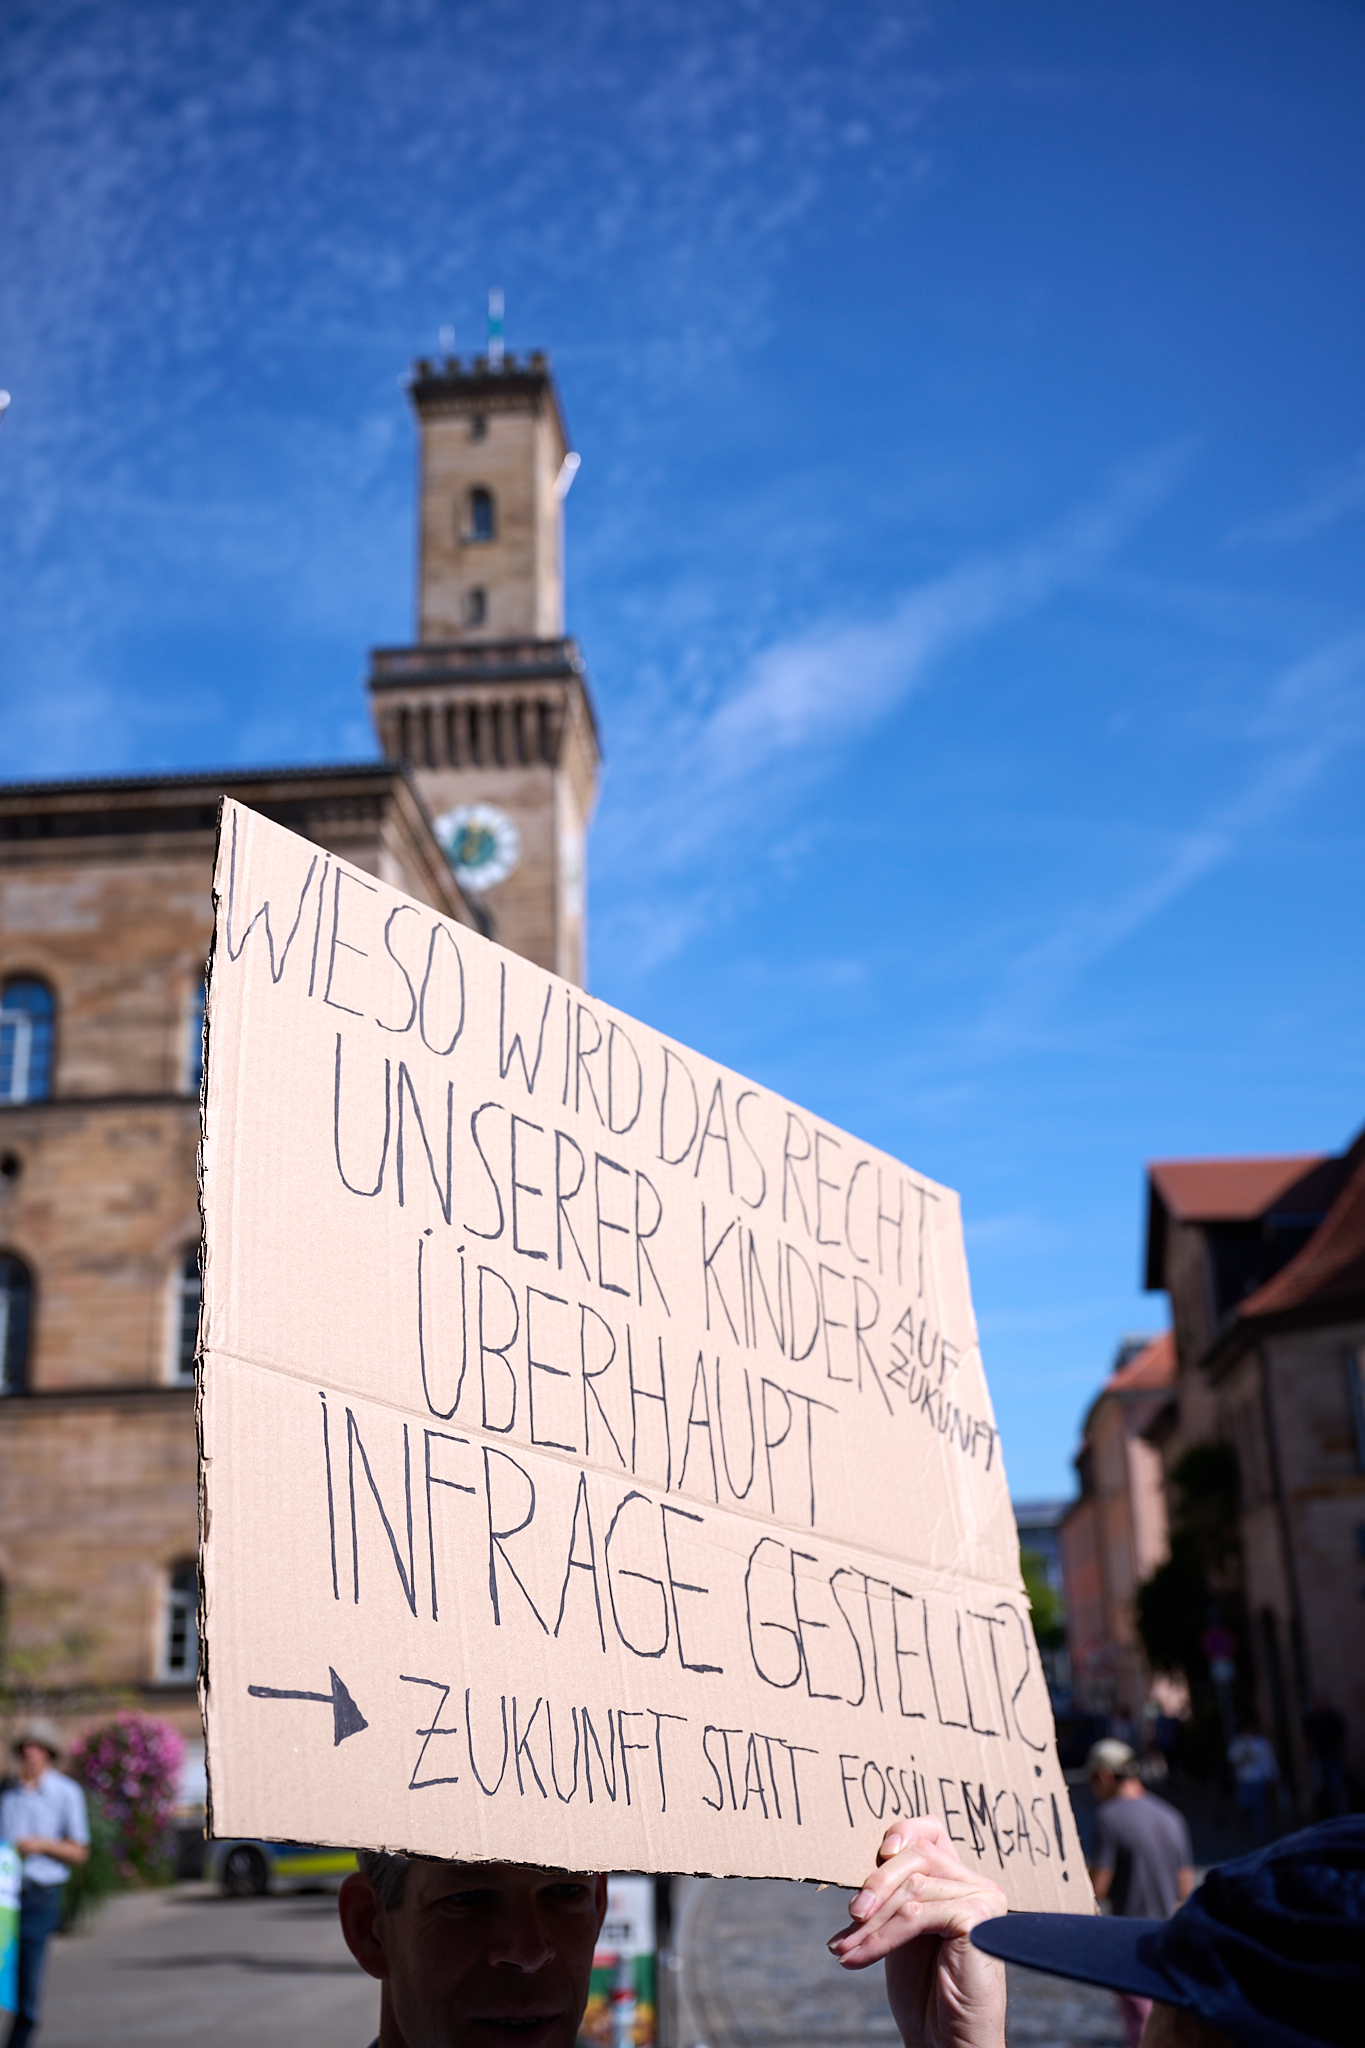 WIESO WIRD DAS RECHT
UNSERER KINDER AUF
ZUKUNFT
ÜBERHAUPT
INFRAGE GESTELLT?
→ ZUKUNFT STATT FOSSILEM GAS!